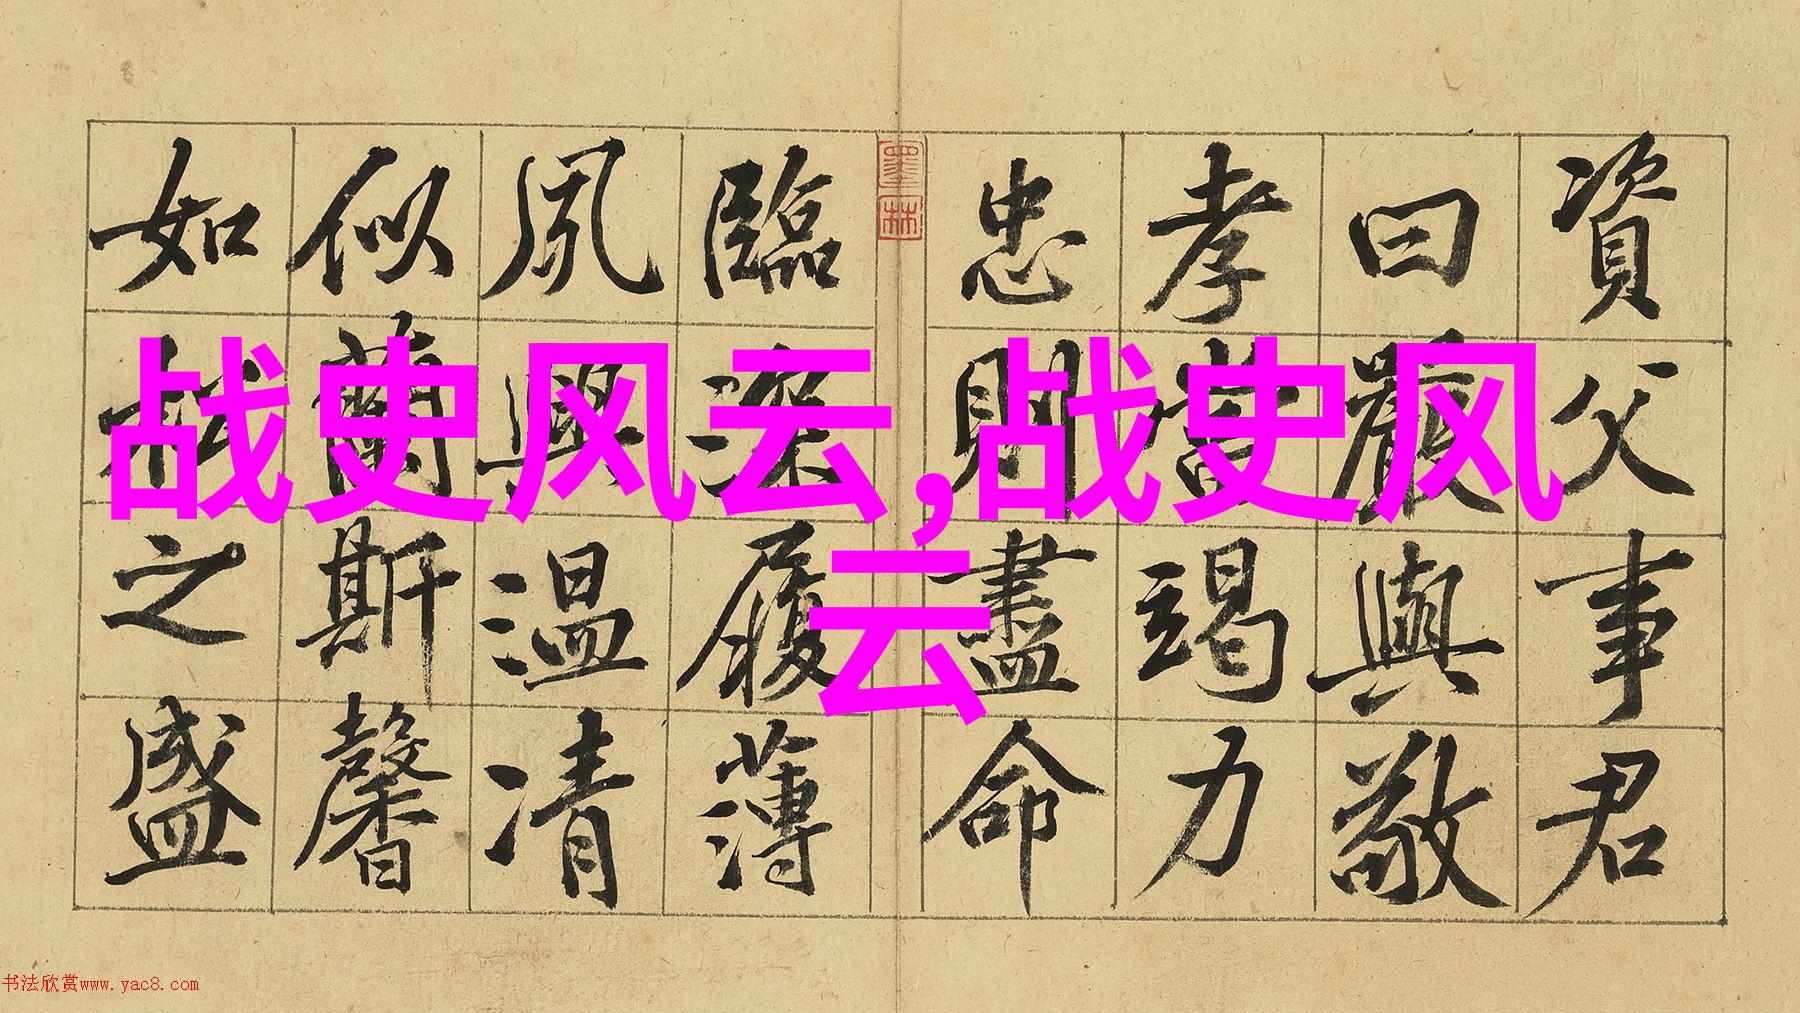 資父事君
曰嚴與敬
孝當竭力
忠則盡命
墨林
臨深履薄
夙興温凊
似蘭斯馨
如松之盛
战史风云,战史风
云
书法欣赏www.yac8.com